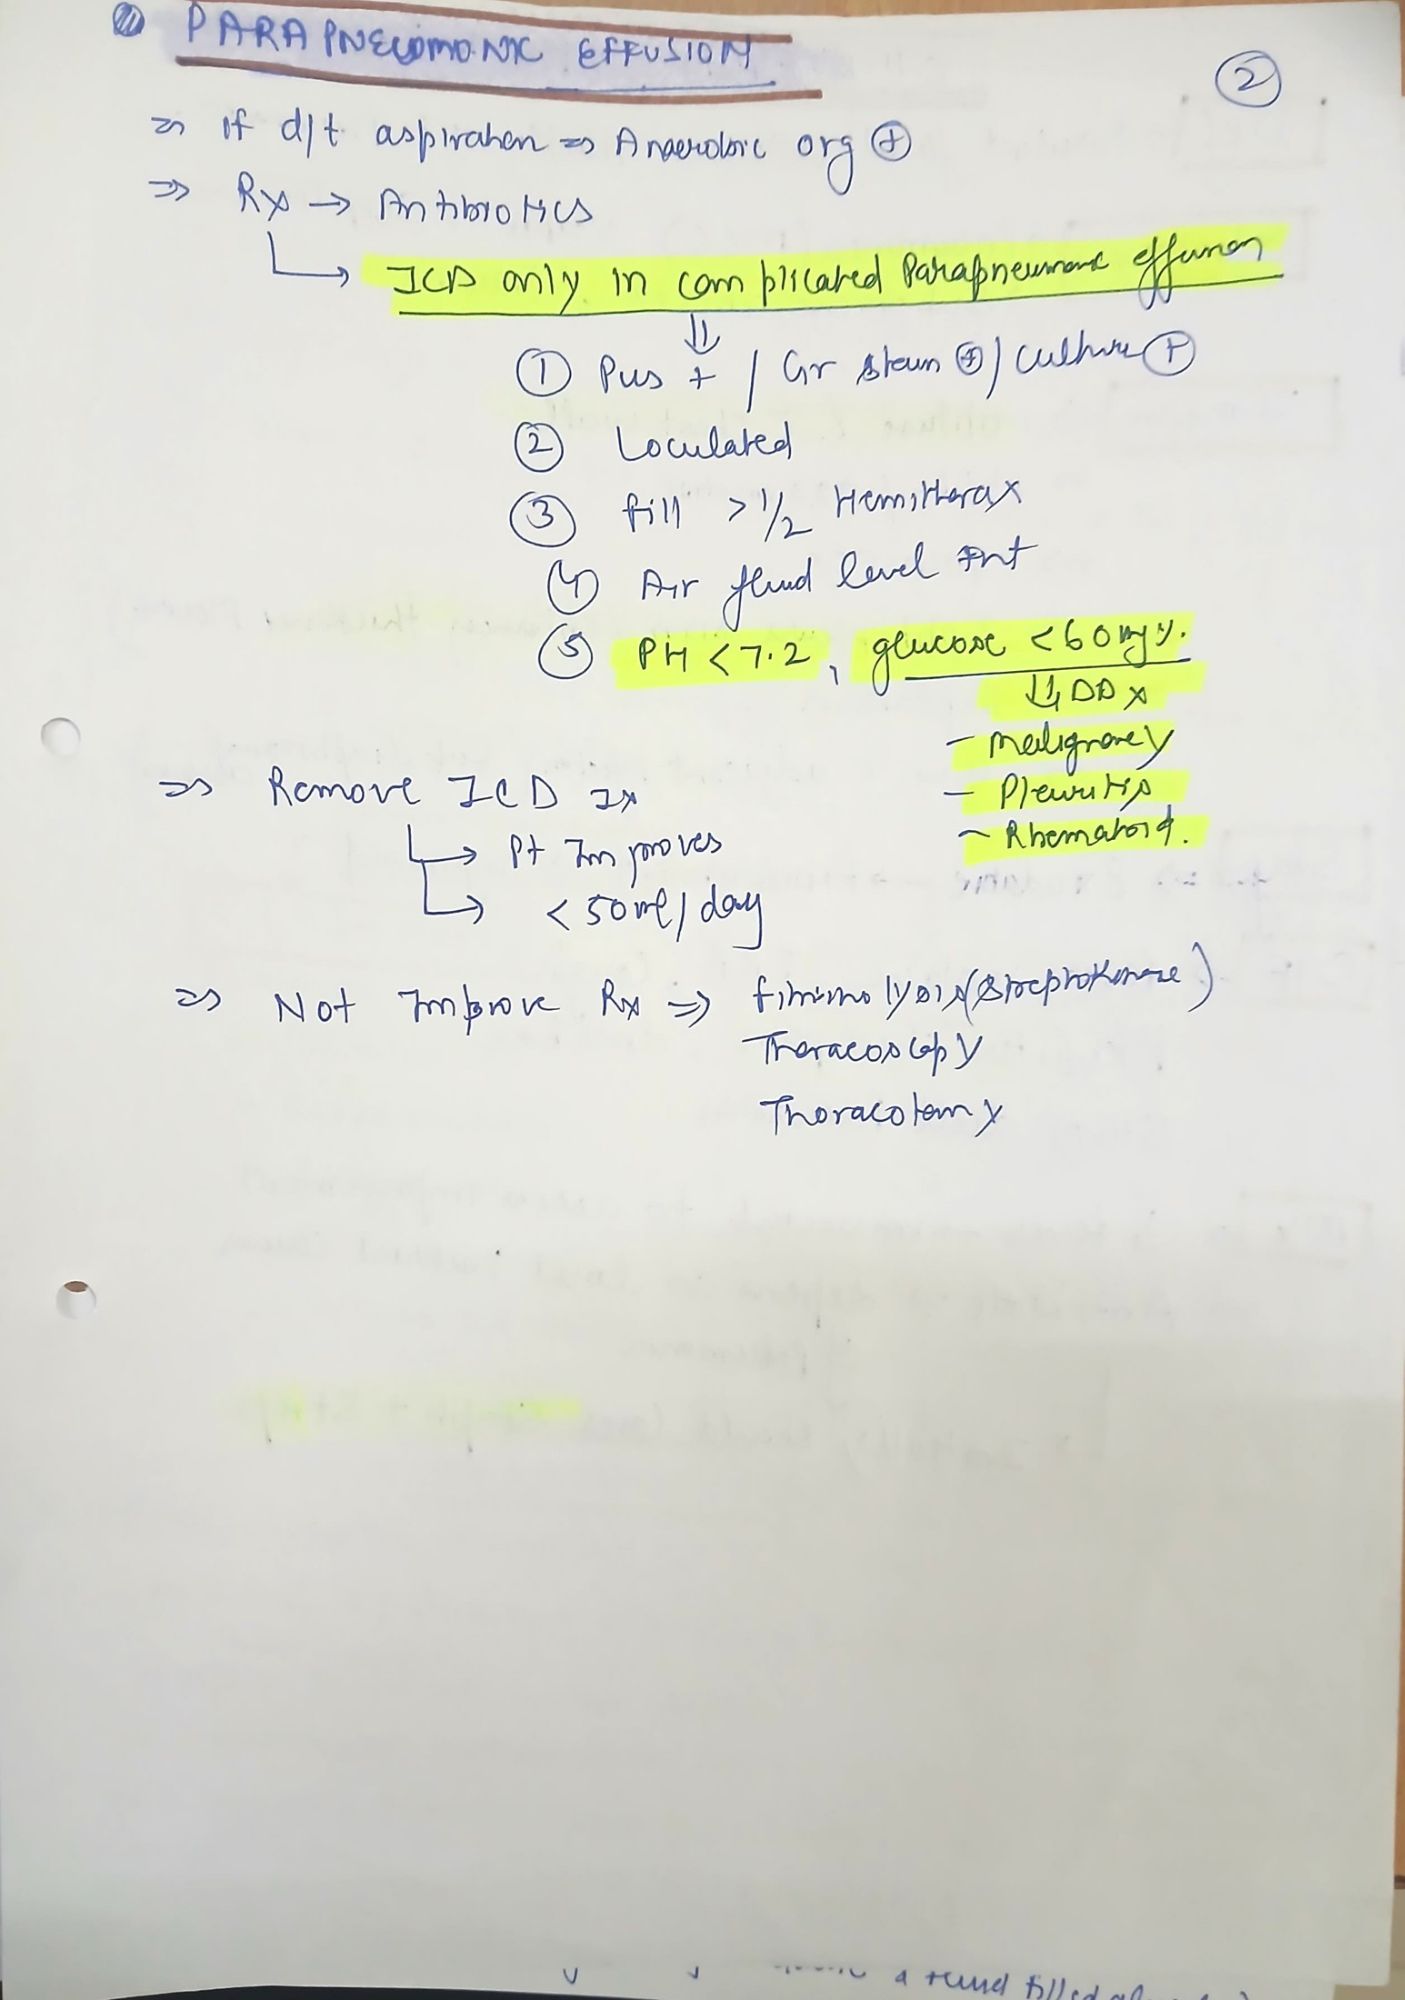 PARAPNEUMONIC EFFUSION
2
⇒ If d/t aspiration ⇒ Anaerobic org ⊕
⇒ Rx → Antibiotics
↳ ICD only in complicated Parapneumonic effusion
⇓
① Pus + / Gr stain ⊕ / culture ⊕
② Loculated
③ fill > 1/2 Hemithorax
④ Air fluid level
⑤ PH < 7.2, glucose < 60 mg%.
⇓ DDx
- Malignancy
- Pleuritis
- Rhematoid.
⇒ Remove ICD Ix
↳ Pt Improves
↳ < 50ml/day
⇒ Not Improve Rx ⇒ fibrinolysis (Streptokinase)
Thoracoscopy
Thoracotomy